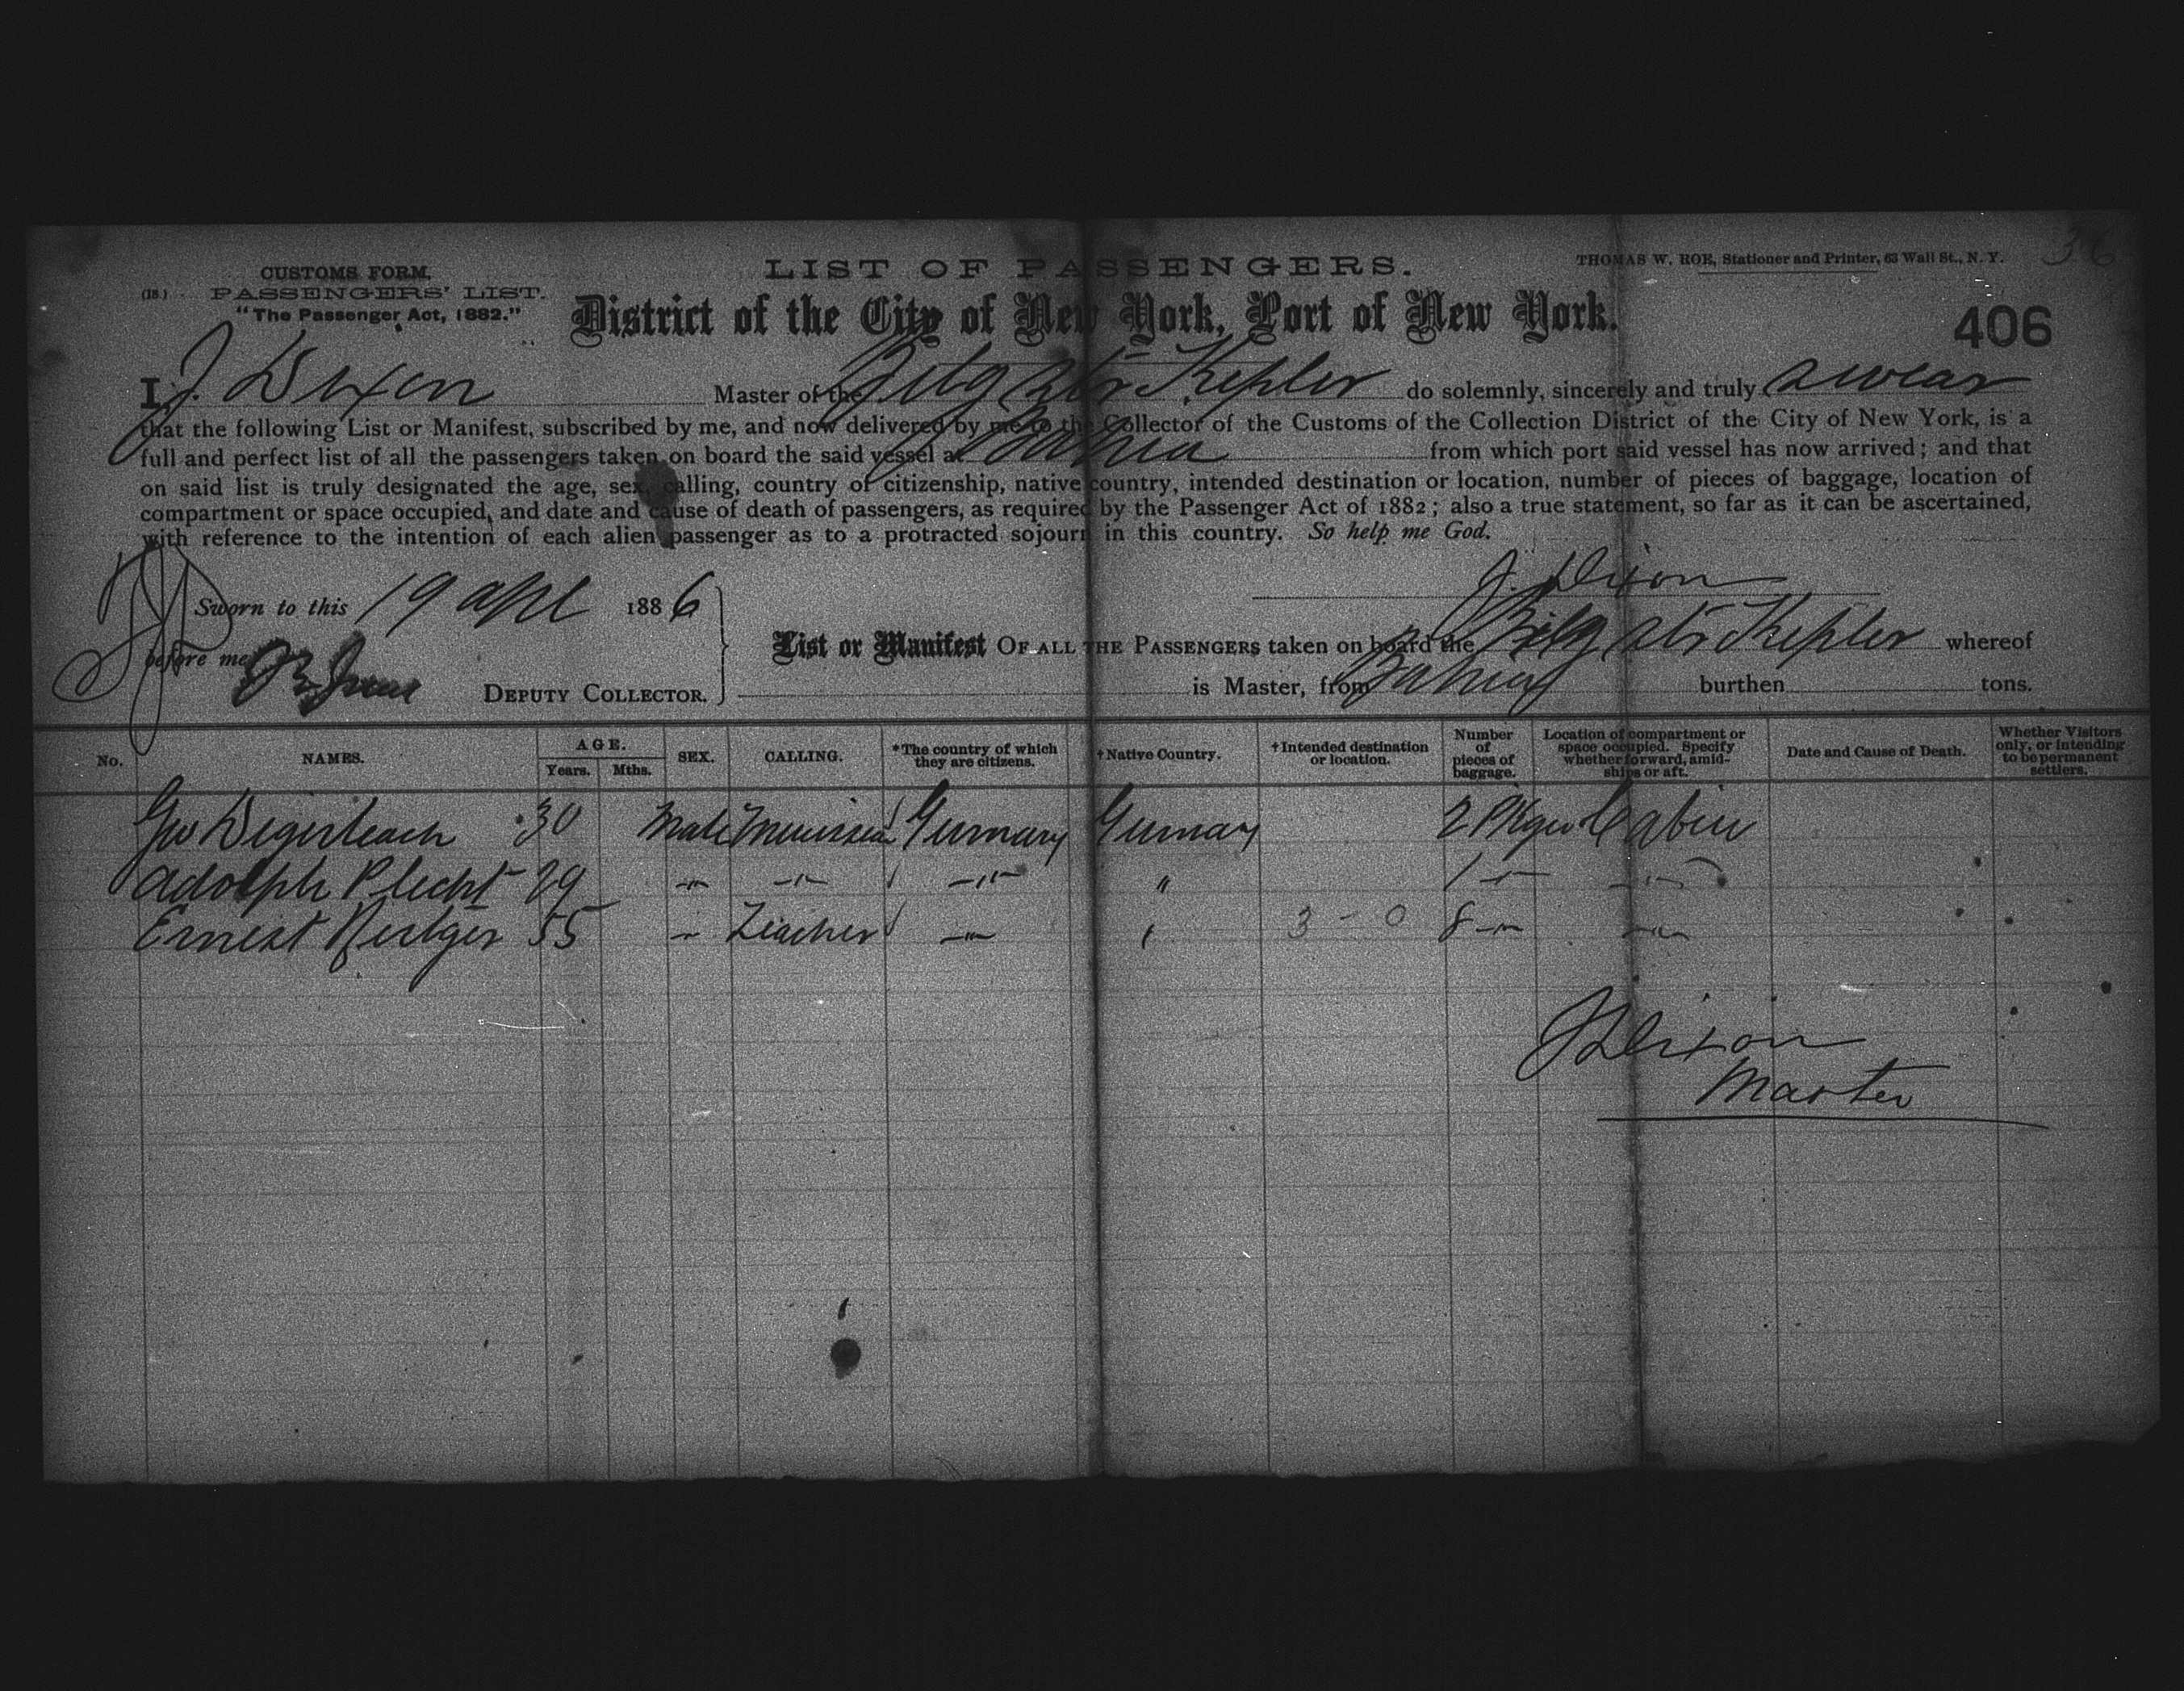 36
CUSTOMS FORM,
(18) PASSENGERS' LIST.
"The Passenger Act, 1882."
LIST OF PASSENGERS.
THOMAS W. ROE, Stationer and Printer, 63 Wall St., N. Y.
District of the City of New York, Port of New York.
406
I, J. Dixon Master of the Belg Str Kepler do solemnly, sincerely and truly swear
that the following List or Manifest, subscribed by me, and now delivered by me to the Collector of the Customs of the Collection District of the City of New York, is a
full and perfect list of all the passengers taken on board the said vessel at Bahia from which port said vessel has now arrived; and that
on said list is truly designated the age, sex, calling, country of citizenship, native country, intended destination or location, number of pieces of baggage, location of
compartment or space occupied, and date and cause of death of passengers, as required by the Passenger Act of 1882; also a true statement, so far as it can be ascertained,
with reference to the intention of each alien passenger as to a protracted sojourn in this country. So help me God.
Sworn to this 19 apl 1886
J. Dixon
before me
DEPUTY COLLECTOR.
List or Manifest OF ALL THE PASSENGERS taken on board the Belg Str Kepler whereof
is Master, from Bahia burthen tons.
No. NAMES. AGE. Years. Mths. SEX. CALLING. *The country of which they are citizens. †Native Country. †Intended destination or location. Number of pieces of baggage. Location of compartment or space occupied. Specify whether forward, amidships or aft. Date and Cause of Death. Whether Visitors only, or intending to be permanent settlers.
Geo 30 Male Germany Germany 2 Pkges Cabin
Adolph Plecht 29 -"- -"- -"- " 1 -"- -"-
Ernest 55 -"- Teacher -"- " 3 - 0 8 -"- -"-
J Dixon
Master